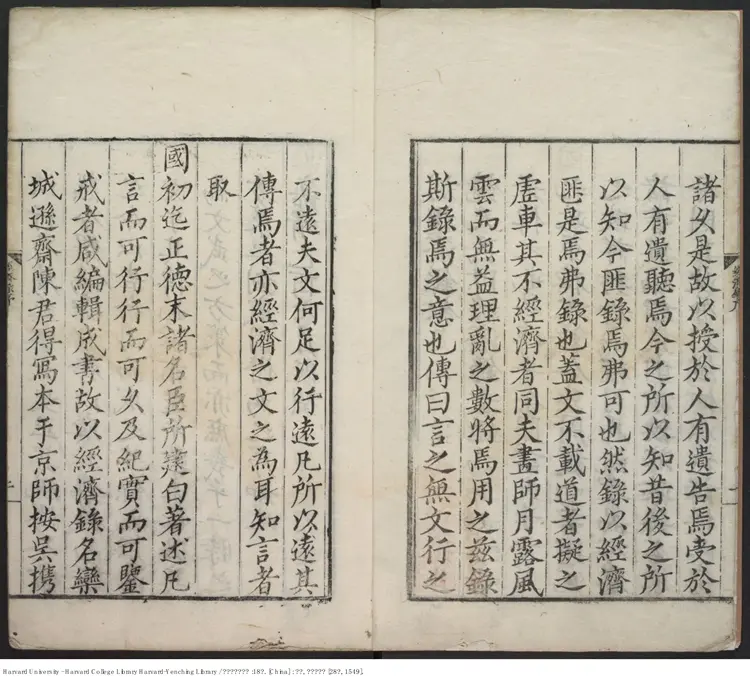 諸久是故以授於人有遺告焉旁於
人有遺聽焉今之所以知昔後之所
以知今匪錄焉弗可也然錄以經濟
匪是焉弗錄也蓋文不載道者擬之
虛車其不經濟者同夫畫師月露風
雲而無益理亂之數將焉用之兹錄
斯錄焉之意也傳曰言之無文行之
不遠夫文何足以行遠凡所以遠其
傳焉者亦經濟之文之為耳知言者
取
國初迄正德末諸名臣所建白著述凡
言而可行行而可久及紀實而可鑒
戒者咸編輯成書故以經濟錄名欒
城遜齋陳君得寫本于京師按吳携
二
Harvard University - Harvard College Library Harvard-Yenching Library / ??????? :18?. [China] : ??, ????? [28?, 1549].